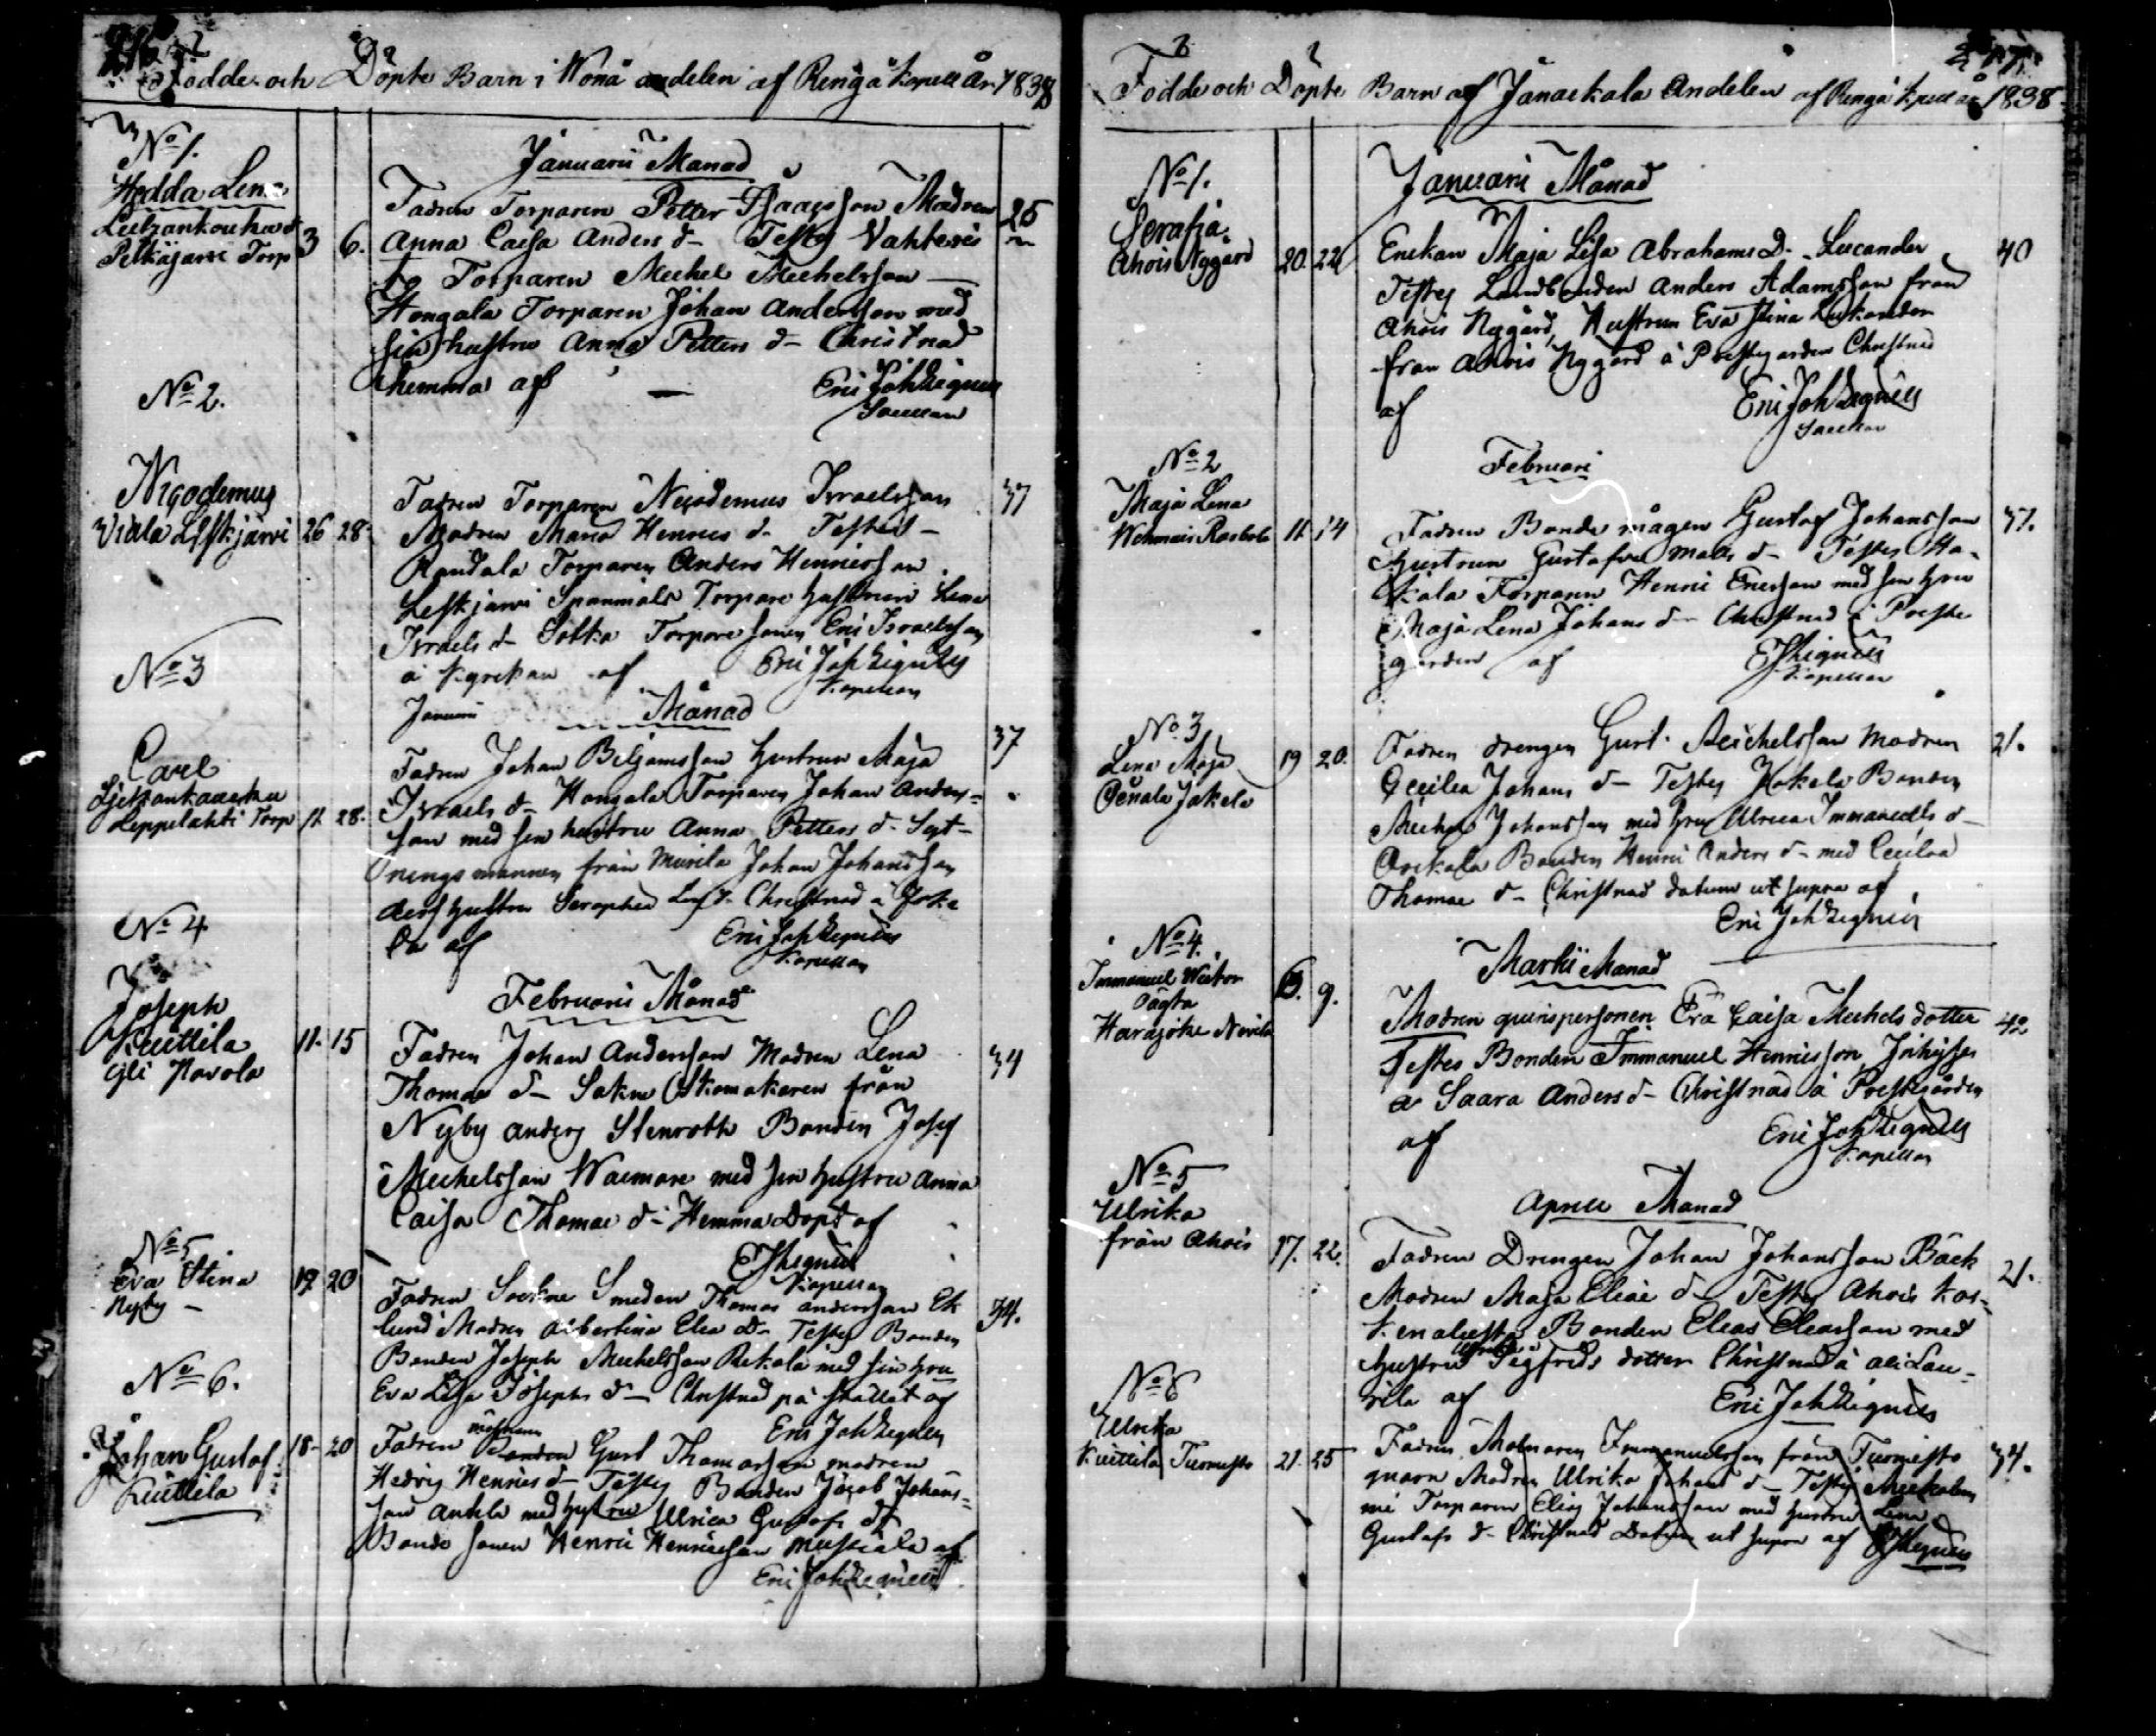 Födde och Döpte Barn i Wonå andelen af Rengå Kapell År 1838
No 1.
Hedda Lena
Pelkäjärvi Torp
3 6.
Januarii Månad
Fadren Torparen Petter Isaacsson Madren
Anna Caisa Anders d- Testes Vahteris
Torparen Michel Michelsson
Hongala Torparen Johan Andersson med
sin hustru Anna Petters d- Christnad
hemma af Eric Joh Zignius
25
No 2.
Nicodemus
Uidla Leskjärvi
26 28.
Fadren Torparen Nicodemus Israelsson
Modren Maria Henrics d- Testes
Randala Torparen Anders Henricsson
Leskjärvi Torpare hustrun Lena
Israels d- Sotka Torpare sonen Eric Israelsson
i Kyrckan af Eric Joh Zignius
Kapellan
37
No 3
Januarii Månad
Carel
Leppelahti Torp
11 28.
Fadren Johan Beljamsson hustrun Maja
Israels d- Hongala Torparen Johan Anders-
son med sin hustru Anna Petters d-
från Murila Johan Johansson
dess hustru Seraphia Christnad i
af Eric Joh Zignius
Kapellan
37
No 4
Februarii Månad
Joseph
Kuittila
Yli Navola
11. 15
Fadren Johan Andersson Modren Lena
Thomas d- Sokne Skomakaren från
Nyby Anders Stenroth Bonden Josef
Michelsson Waimare med sin hustru Anna
Caisa Thomae d- Hemma Döpt af
EJZignius
Kapellan
34
No 5
Eva Stina
Nyby -
19 20
Fadren Sockne Smeden Thomas Andersson Ek
lund Madren Albertina Elia d- Testes Bonden
Bonden Joseph Michelsson Rekola med sin hru
Eva Lisa Josephs d- Christnad på stället af
Eric Joh Zignius
34.
No 6.
Johan Gustof
Kuittila
18- 20
Fadren Gust Thomasson modren
Hedvig Henrics d- Testes Bonden Jacob Johans-
son Anhla med hustru Ulrica Gustafs d-
Bonde sonen Henric Henricsson af
Eric Joh Zignius
Födde och Döpte Barn af Janackala Andelen af Rengå Kapell år 1838.
No 1.
Serafia
Ahois Nygård
20. 22
Januarii Månad
Enckan Maja Lisa Abrahams D. Lucander
Testes Landbonden Anders Adamsson från
Ahois Nygård, Hustrun Eva Stina Lukander
från Ahois Nygård å Prestgården Christnad
af Eric Joh Zignius
40
No 2
Februari
Maja Lena
Rasbole
11. 14
Fadren Bonde mågen Gustaf Johansson
hustrun Gustafva Mats d- Testes Ha-
kala Torparen Henric Ericsson med sin hru
Maja Lena Johans d- Christnad i Preste
gården af EJZignius
Kapellan
37.
No 3
Lena Maja
Jakela
19 20.
Fadren drengen Gust. Michelsson Modren
Cecilia Johans d- Testes Jakela Bonden
Michel Johansson med hru Ulrica Immanuels d-
Bonden Henric Anders d- med Cecilia
Thomae d- Christnad datum ut supra af
Eric Joh Zignius
21.
No 4.
Martii Månad
Immanuel Wictor
Oägta
Harajoke
6. 9.
Modren quinspersonen Eva Caisa Michels dotter
Testes Bonden Immanuel Henricsson
a Saara Anders d- Christnad å Prestgården
af Eric Joh Zignius
Kapellan
42
No 5
Aprill Månad
Ulrika
från Ahois
17. 22.
Fadren Drengen Johan Johansson Bäck
Modren Maja Eliae d- Testes Ahois Kos-
kenalusta Bonden Elias Eliasson med
hustru Ulrika Sigfrids dotter Christnad å Ali Lau-
rila af Eric Joh Zignius
21.
No 6
Ulrika
Kuittila Turmesto
21. 25
Fadren Molnaren Immanuelsson från Turmesto
quarn Madren Ulrika Johans d- Testes
Torparen Elias Johansson med hustru Lena
Gustafs d- Christnad Datum ut supra af EJZignius
34.